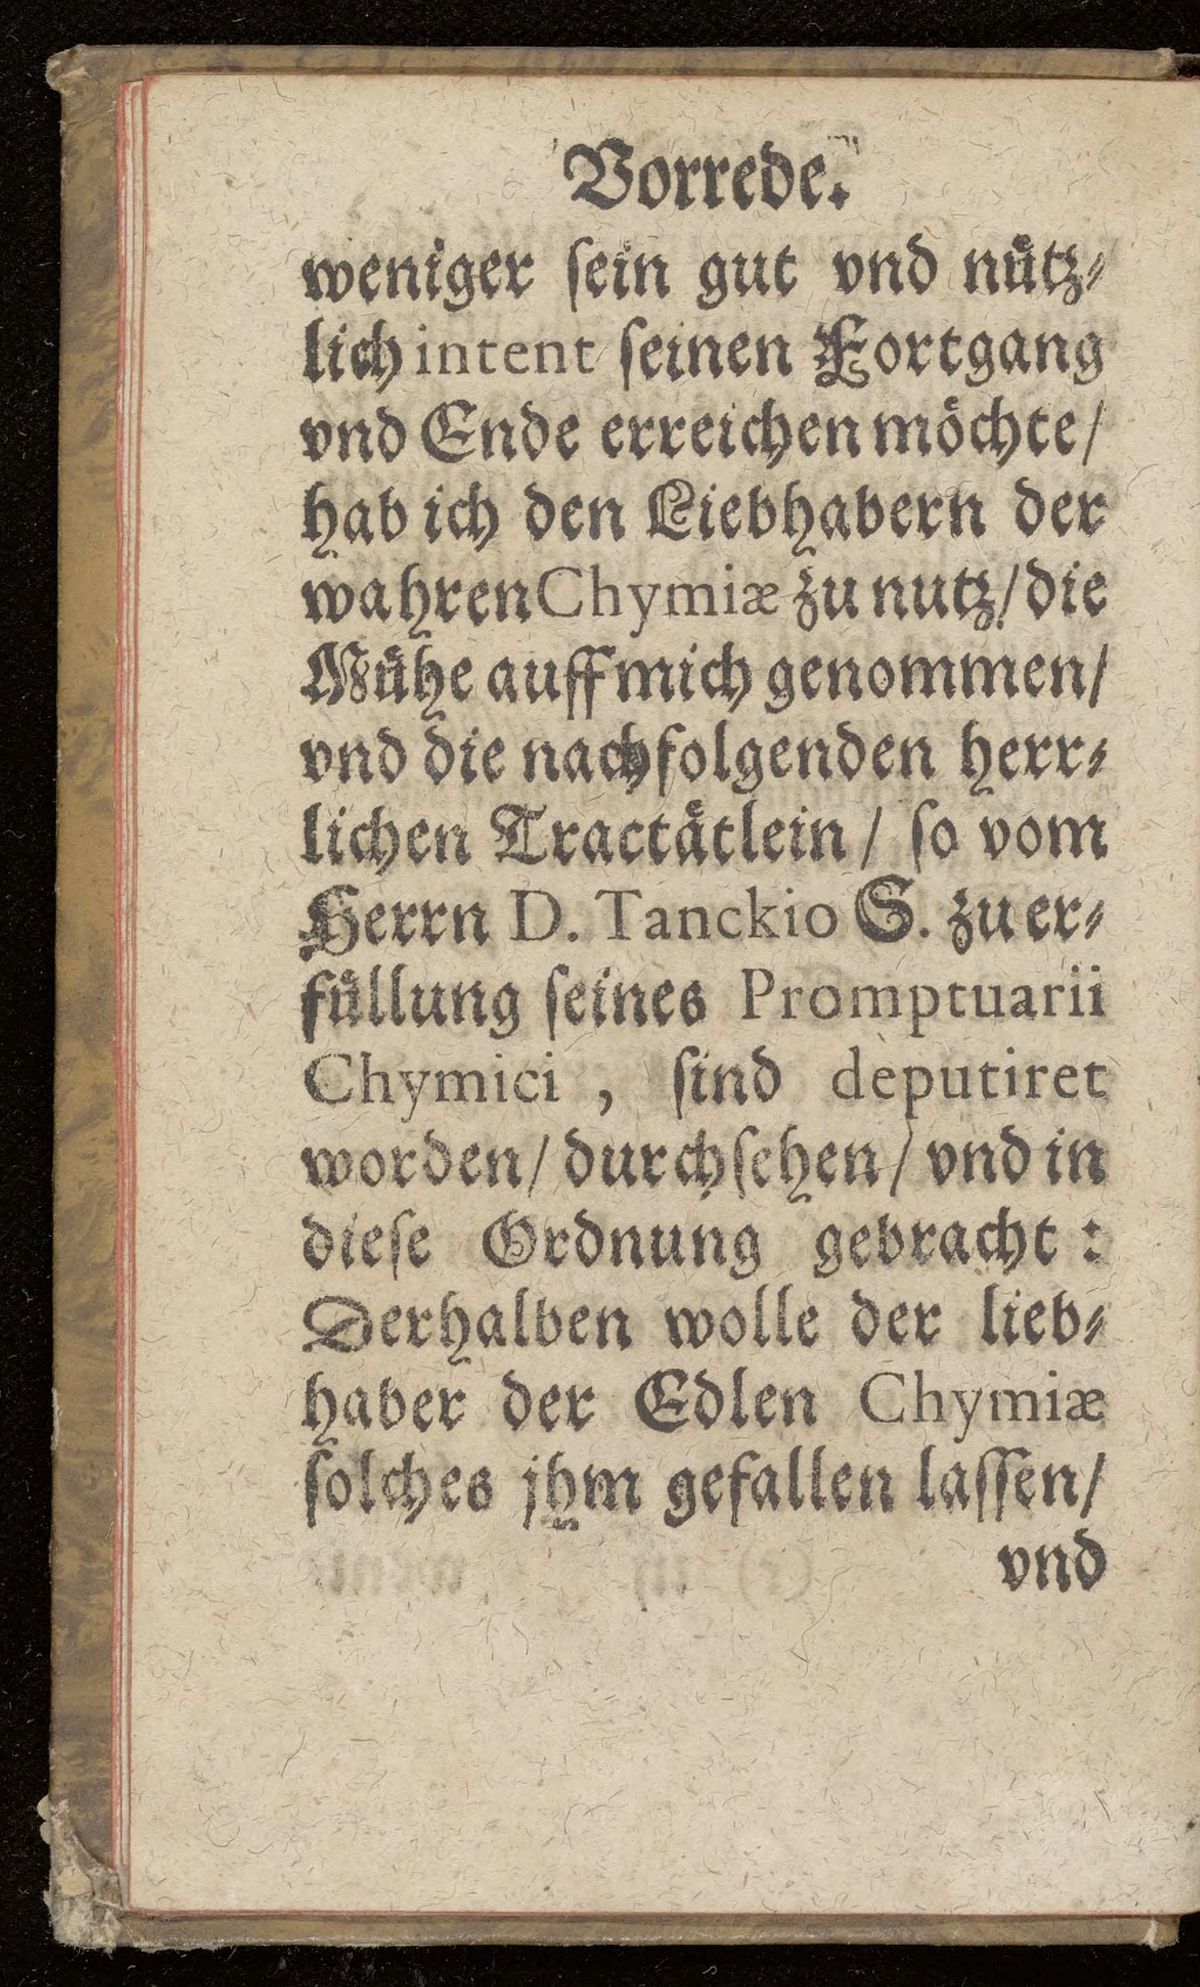 Vorrede.
weniger ſein gut vnd nuͤtz⸗
lich intent ſeinen Fortgang
vnd Ende erreichen moͤchte/
hab ich den Liebhabern der
wahren Chymiæ zu nutz/ die
Muͤhe auff mich genommen/
vnd die nachfolgenden herr⸗
lichen Tractaͤtlein/ ſo vom
Herrn D. Tanckio S. zu er⸗
fuͤllung ſeines Promptuarii
Chymici, ſind deputiret
worden/ durchſehen/ vnd in
dieſe Ordnung gebracht:
Derhalben wolle der lieb⸗
haber der Edlen Chymiæ
ſolches jhm gefallen laſſen/
vnd